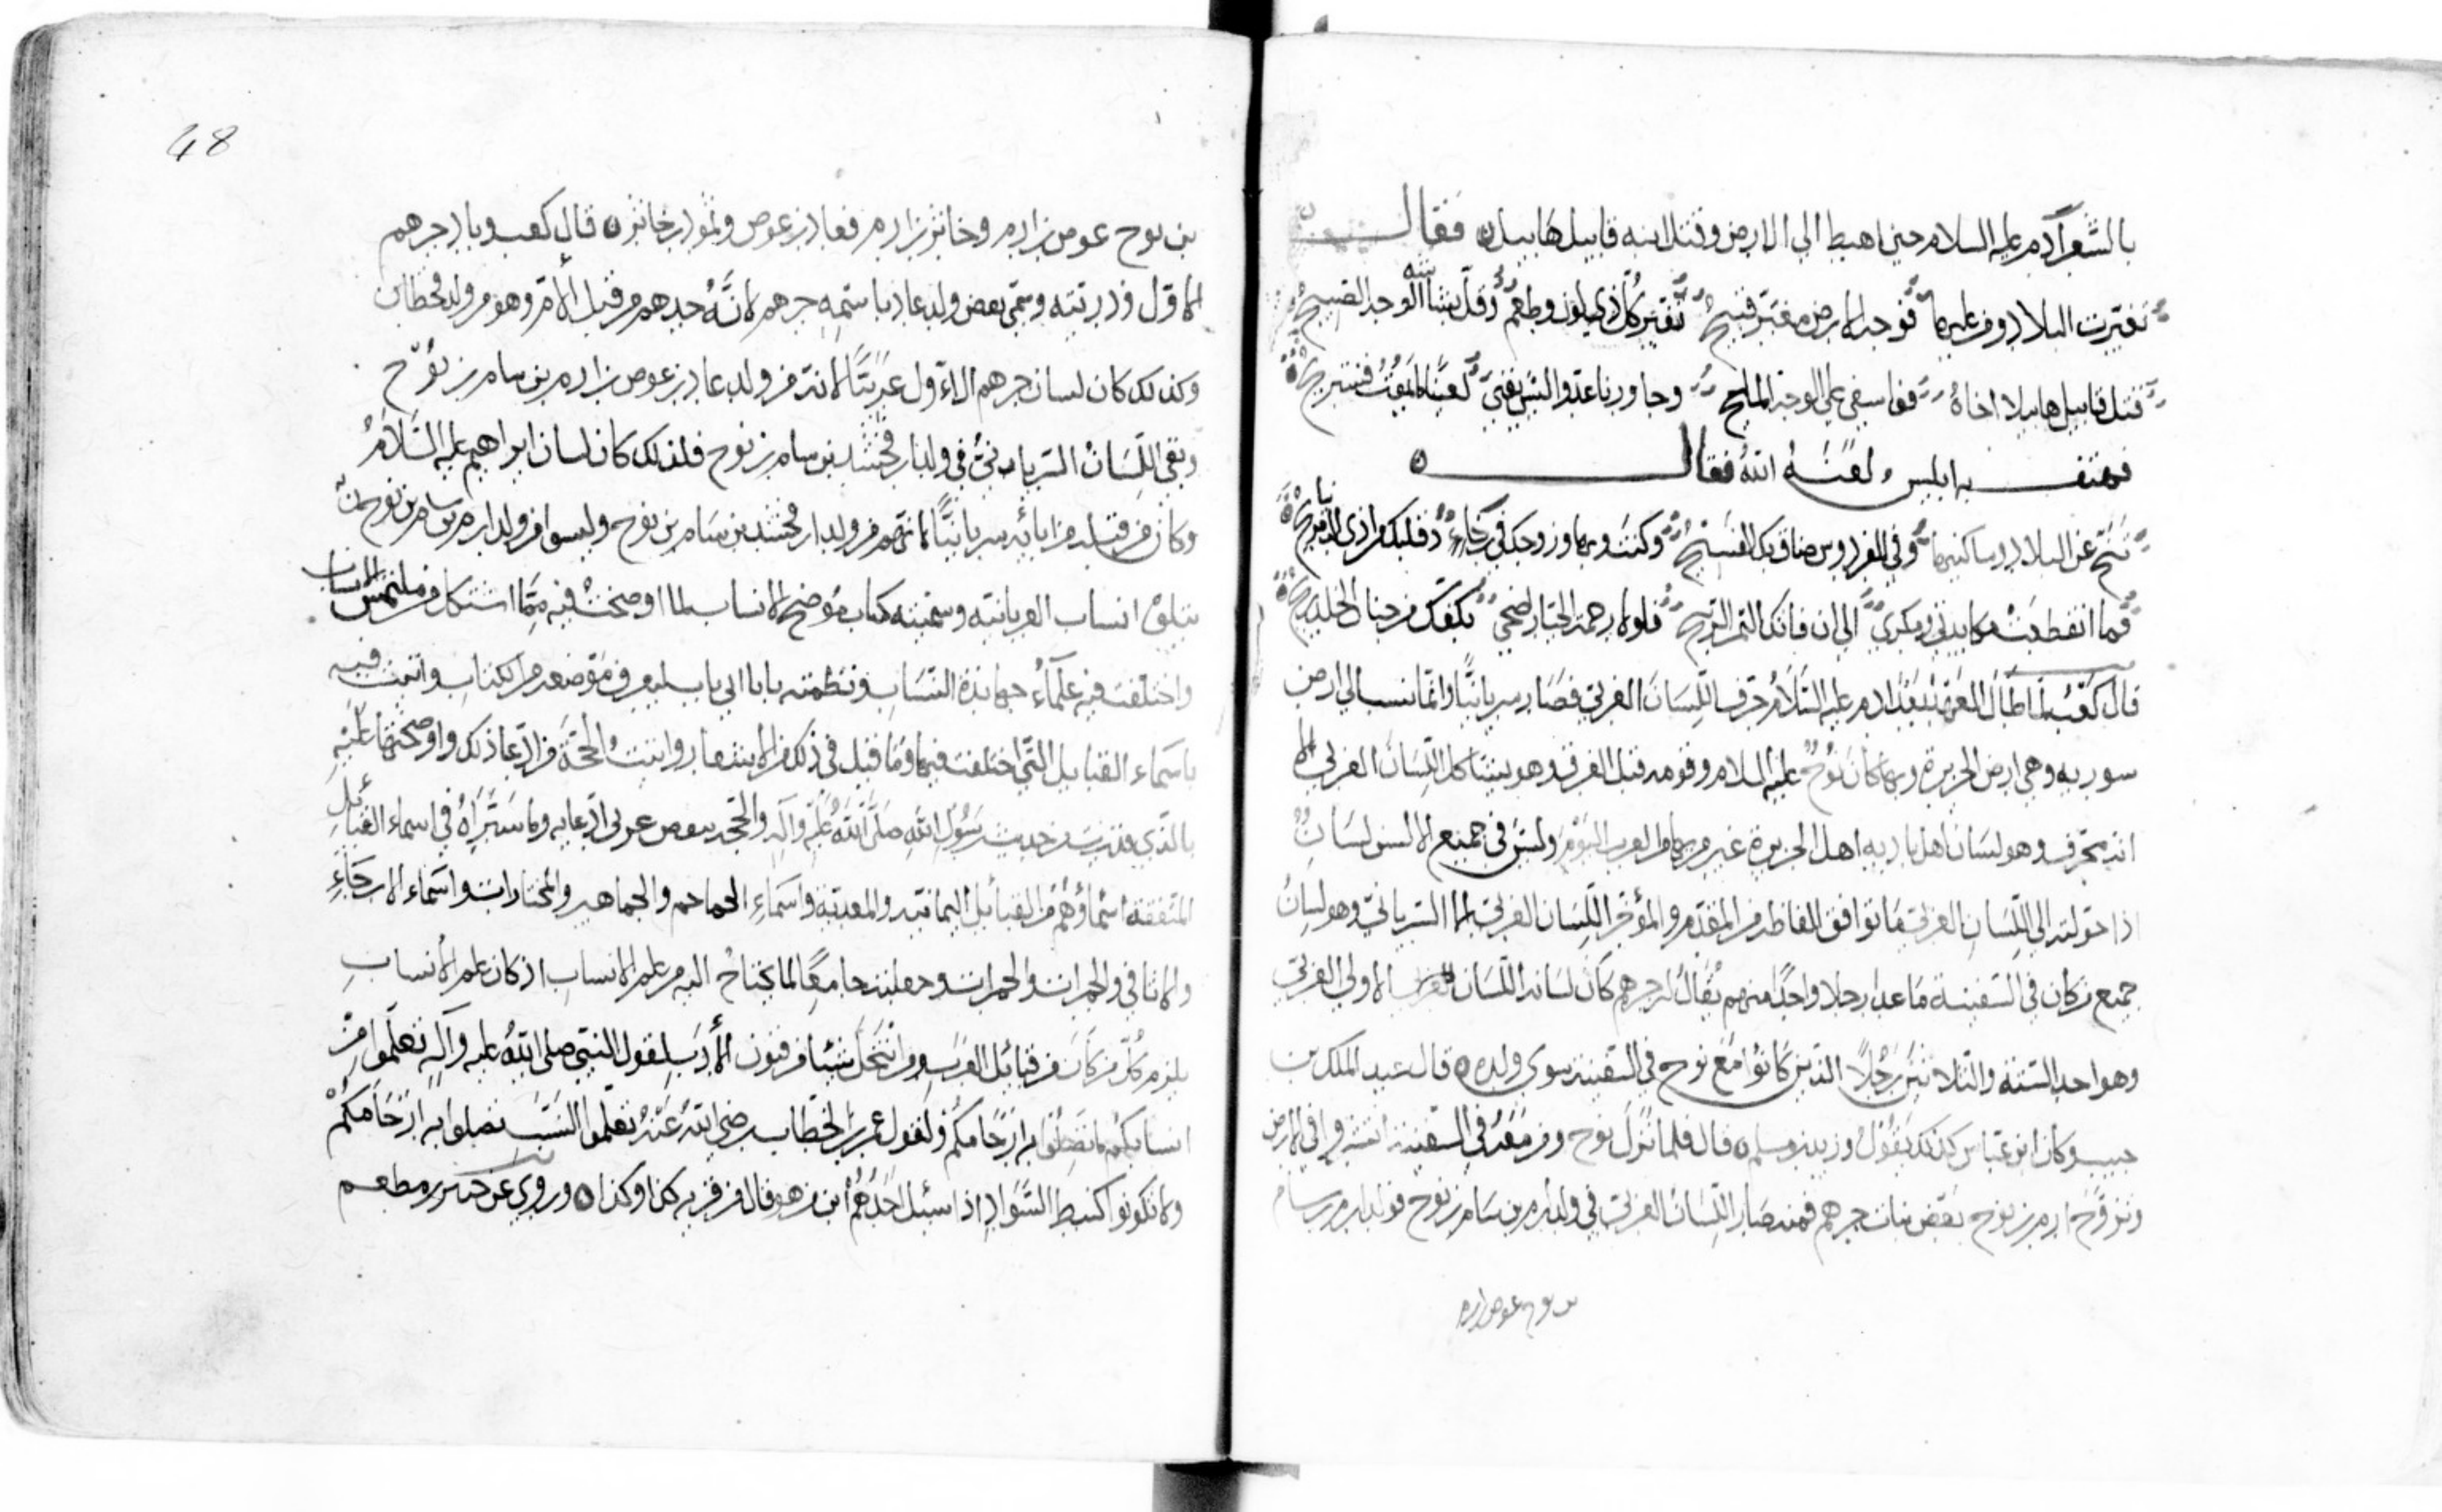 بالشعر آدم عليه السلام حين اهبط الي الارض وقتل ابنه قابيل هابيل فقال
تغيرت البلاد ومن عليها فوجه الارض مغبر قبيح تغير كل ذي لون وطعم وقل بشاشة الوجه الصبيح
قتل قابيل هابيلا اخاه فوا اسفي علي الوجه المليح وجاورنا عدو ليس يفني لعين لا يموت فنستريح
فهتف به ابليس لعنه الله فقال
تنح عن البلاد وساكنيها وفي الفردوس ضاق بك الفسيح وكنت بها وزوجك في رخاء وقلبك من اذي الدنيا مريح
فما انفكت مكايدتي ومكري الي ان فاتك الثمن الربيح فلولا رحمة الجبار اضحي بكفك من جنان الخلد ريح
قال كعب لما طال العهد بعد ادم عليه السلام حرف اللسان العربي فصار سريانيا وانما نسب الي ارض
سوريه وهي ارض الجزيرة وبها كان نوح عليه السلام وقومه قبل الغرق وهو يشاكل اللسان العربي الا
انه محرف وهو لسان اهل باديه اهل الجزيرة غير من بها من العرب اليوم وليس في جميع الالسن لسان
اذا حولته الي اللسان العربي ما توافق الفاظه من المقدم والمؤخر اللسان العربي الا السرياني وهو لسان
جميع من كان في السفينة ما عدا رجلا واحدا منهم يقال له جرهم كان لسانه اللسان الاولي العربي
وهو احد الستة والثلاثين رجلا الذين كانوا مع نوح في السفينة سوي ولده قال عبد الملك بن
حبيب وكان ابن عباس كذلك يقول وزيد بن مسلم قال فلما نزل نوح ومن معه في السفينة في الارض
وتزوج ارم بن نوح بعض بنات جرهم فمنه صار اللسان العربي في ولد ارم بن سام بن نوح فولد ارم بن سام
بن نوح عوص ارم
48
بن نوح عوص بن ارم وخاثر بن ارم فعاد بن عوص وثمود بن خاثر قال كعب وباد جرهم
الاول وذريته وسمي بعض ولد عاد باسمه جرهم لانه جدهم من قبل الام وهو من ولد قحطان
وكذلك كان لسان جرهم الاول عربيا لانه من ولد عاد بن عوص بن ارم بن سام بن نوح
وبقي اللسان السرياني في ولد ارفخشد بن سام بن نوح فلذلك كان لسان ابراهيم عليه السلام
وكان من قبله من ابائه سريانيا لانهم من ولد ارفخشد بن سام بن نوح وليسوا من ولد ارم بن سام بن نوح
انساب العربانيه وسميته كتاب موضح الانساب لما اوضحت فيه مما اشتكل من ملتمس
واختلفت فيه علماء جهابذة النساب ونظمته بابا الي باب ليعرف موضعه من الكتاب واتيت فيه
باسماء القبايل التي اختلفت فيها وما قيل في ذلك من الاشعار واثبت الحجة من ادعا ذلك واوضحتها عليه
بالذي من حديث رسول الله صلي الله عليه وآله والحجه بعض عربي ادعايه وما ستراه في اسماء القبايل
المتفقة اسماؤهم من القبائل اليمانيه والمعديه واسماء الجماجم والجماهير والمختارات واسماء الارجاء
والاثافي والجمرات والحمرات وجعلته جامعا لما يحتاج اليه من علم الانساب اذ كان علم الانساب
يلزم كل من كان من قبائل العرب ومن انتحل شيئا من فنون الأدب لقول النبي صلي الله عليه وآله تعلموا من
انسابكم ما تصلوا به ارحامكم ولقول عمر بن الخطاب رضي الله عنه تعلموا النسب تصلوا به ارحامكم
ولا تكونوا كنبط السواد اذا سئل احدهم ابن من هو قال من قريه كذا وكذا وروي عن جبير بن مطعم